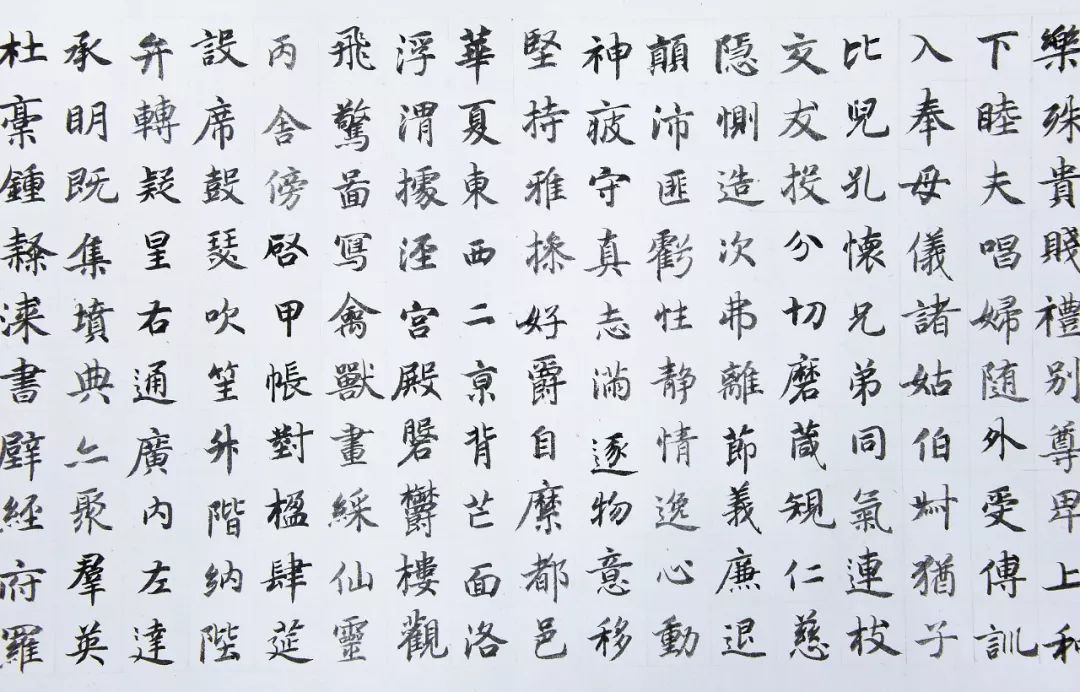 樂殊貴賤禮別尊卑上和
下睦夫唱婦随外受傅訓
入奉母儀諸姑伯叔猶子
比兒孔懷兄弟同氣連枝
交友投分切磨箴規仁慈
隱惻造次弗離節義廉退
顛沛匪虧性静情逸心動
神疲守真志滿逐物意移
堅持雅操好爵自縻都邑
華夏東西二京背芒面洛
浮渭據涇宮殿磐欝樓觀
飛驚啚寫禽獸畫綵仙靈
丙舎傍啓甲帳對楹肆筵
設席鼓瑟吹笙升階納陛
弁轉疑星右通廣内左達
承明既集墳典亦聚羣英
杜稾鍾隸漆書壁經府羅